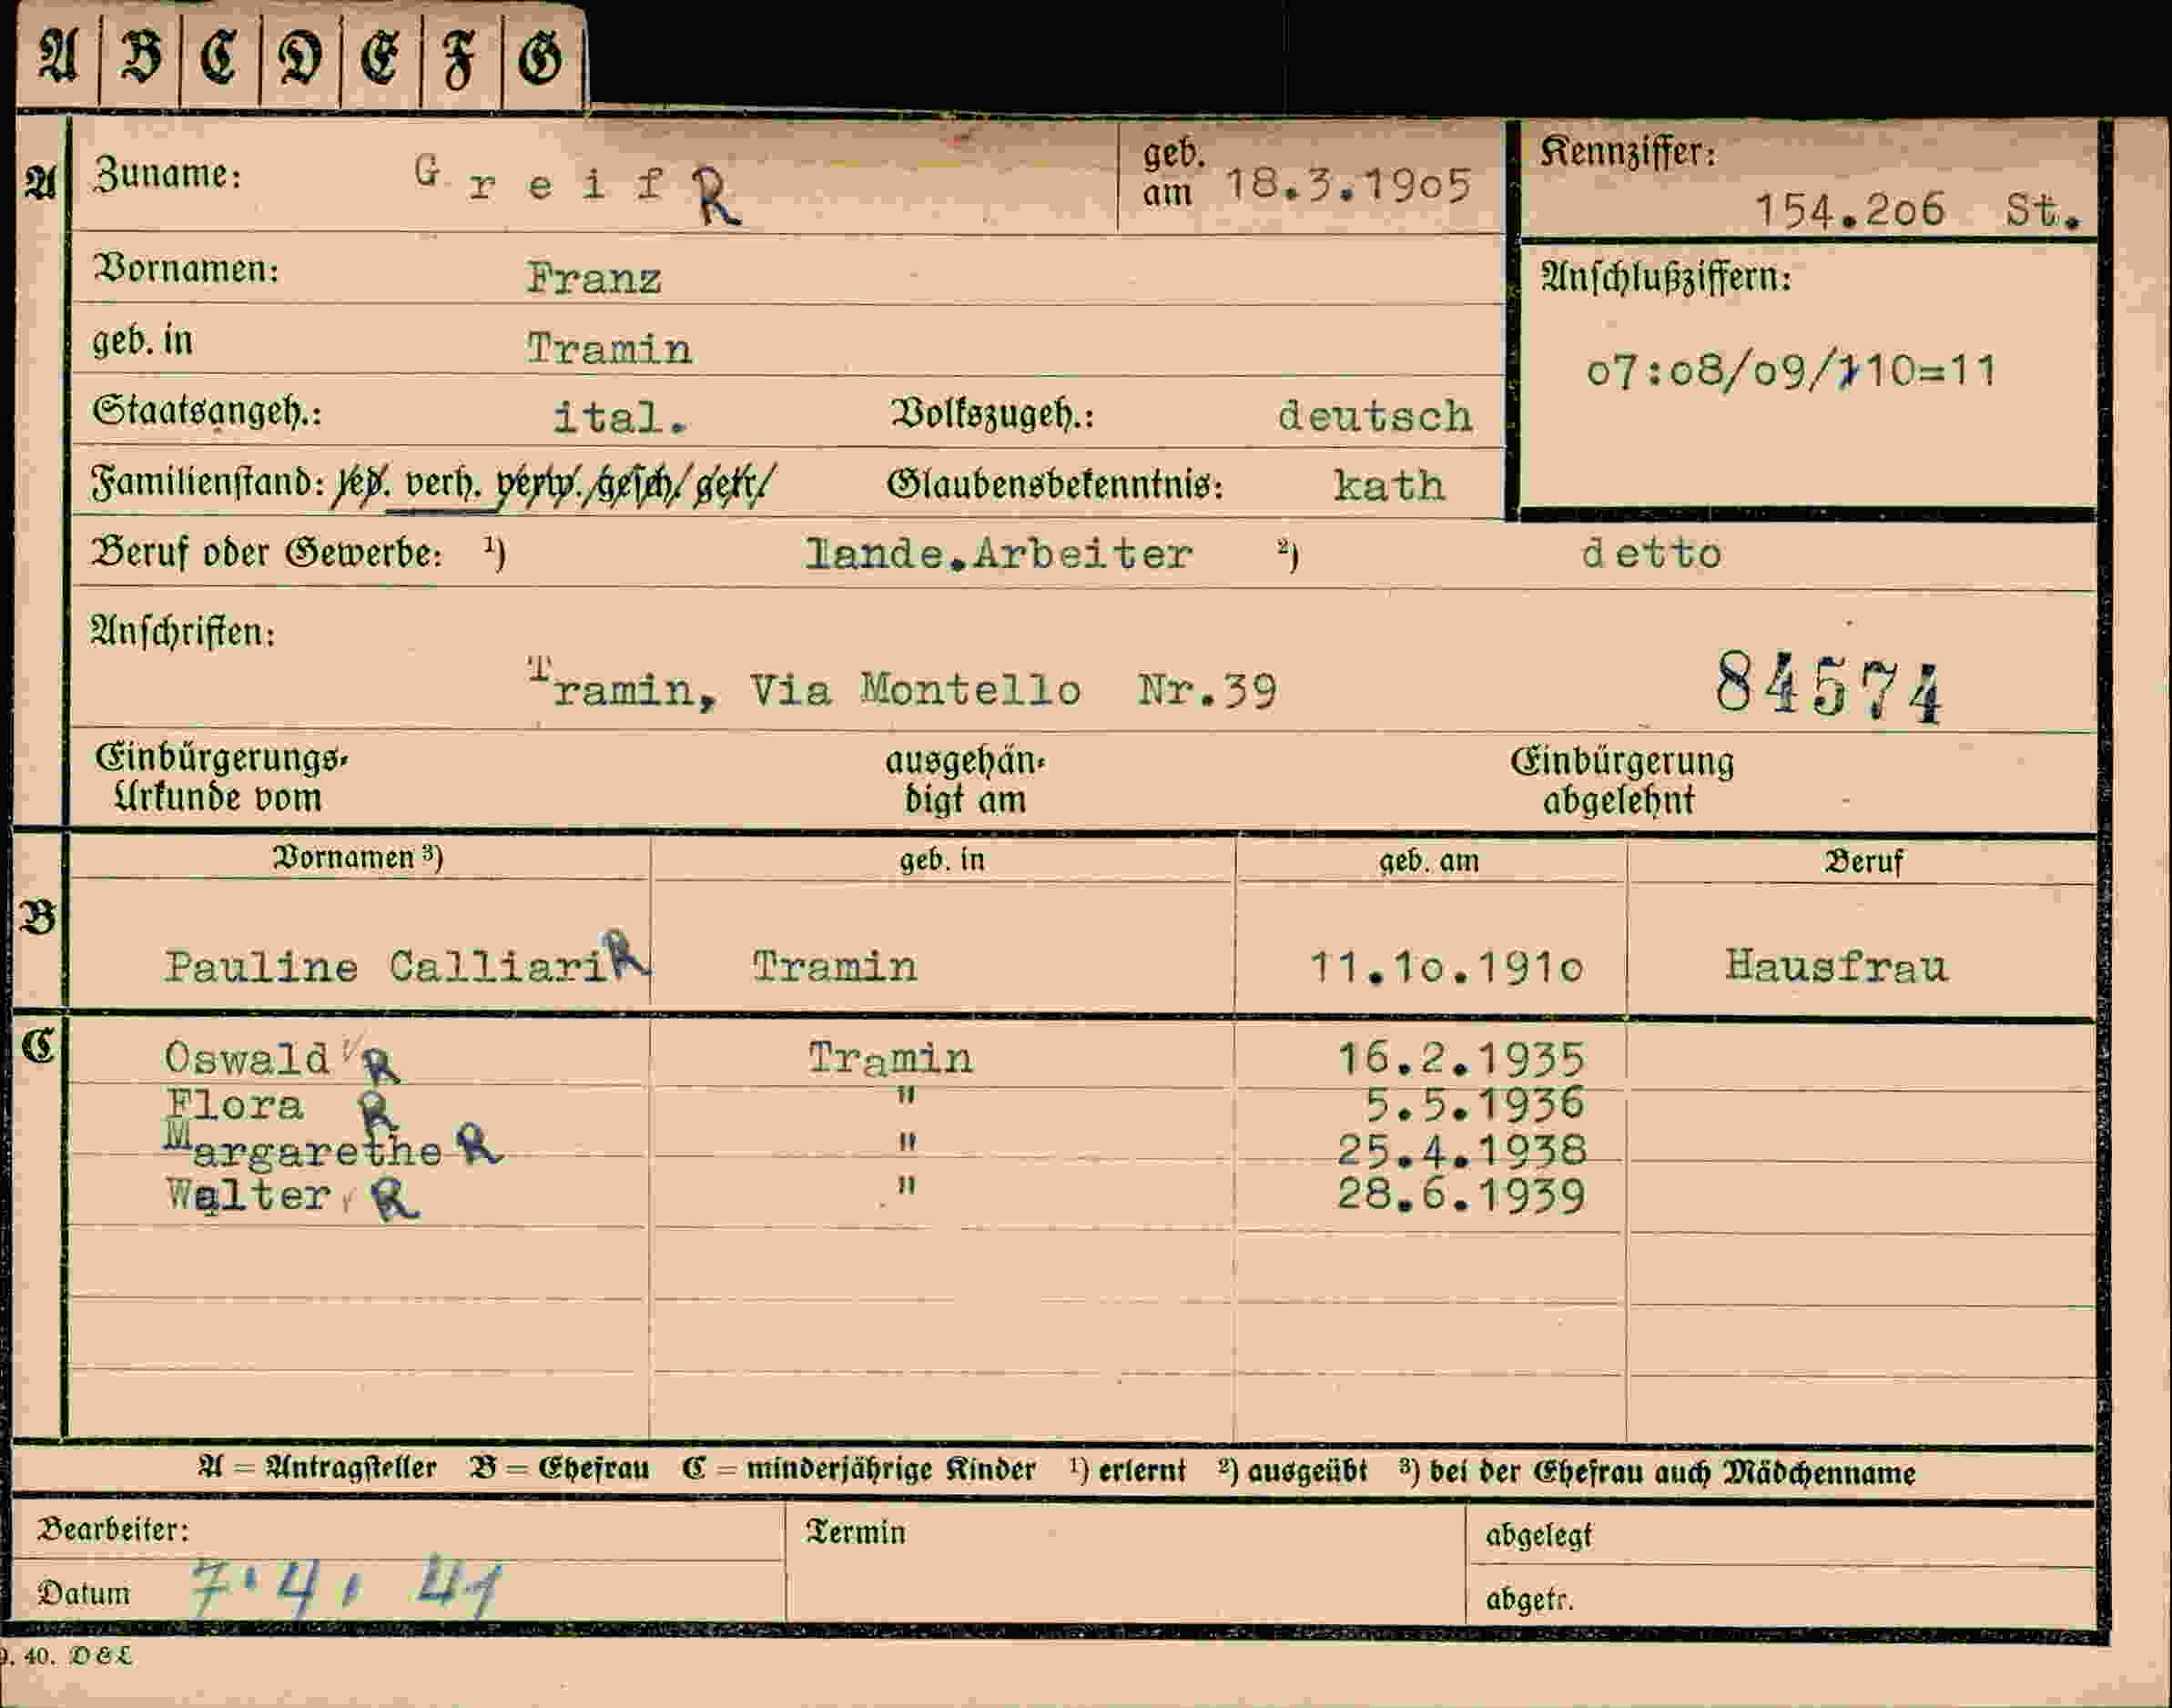 A B C D E F G
A Zuname: Greif R geb. am 18.3.1905 Kennziffer: 154.206 St.
Vornamen: Franz Anschlußziffern:
geb. in Tramin 07:08/09/110=11
Staatsangeh.: ital. Volkszugeh.: deutsch
Familienstand: led. verh. verw. gesch. getr. Glaubensbekenntnis: kath
Beruf oder Gewerbe: ¹) lande.Arbeiter ²) detto
Anschriften:
Tramin, Via Montello Nr.39 84574
Einbürgerungs- ausgehän- Einbürgerung
Urkunde vom digt am abgelehnt
Vornamen ³) geb. in geb. am Beruf
B Pauline Calliari R Tramin 11.10.1910 Hausfrau
C Oswald R Tramin 16.2.1935
Flora R " 5.5.1936
Margarethe R " 25.4.1938
Walter R " 28.6.1939
A = Antragsteller B = Ehefrau C = minderjährige Kinder ¹) erlernt ²) ausgeübt ³) bei der Ehefrau auch Mädchenname
Bearbeiter: Termin abgelegt
Datum 7.4.41 abgetr.
40. D&L